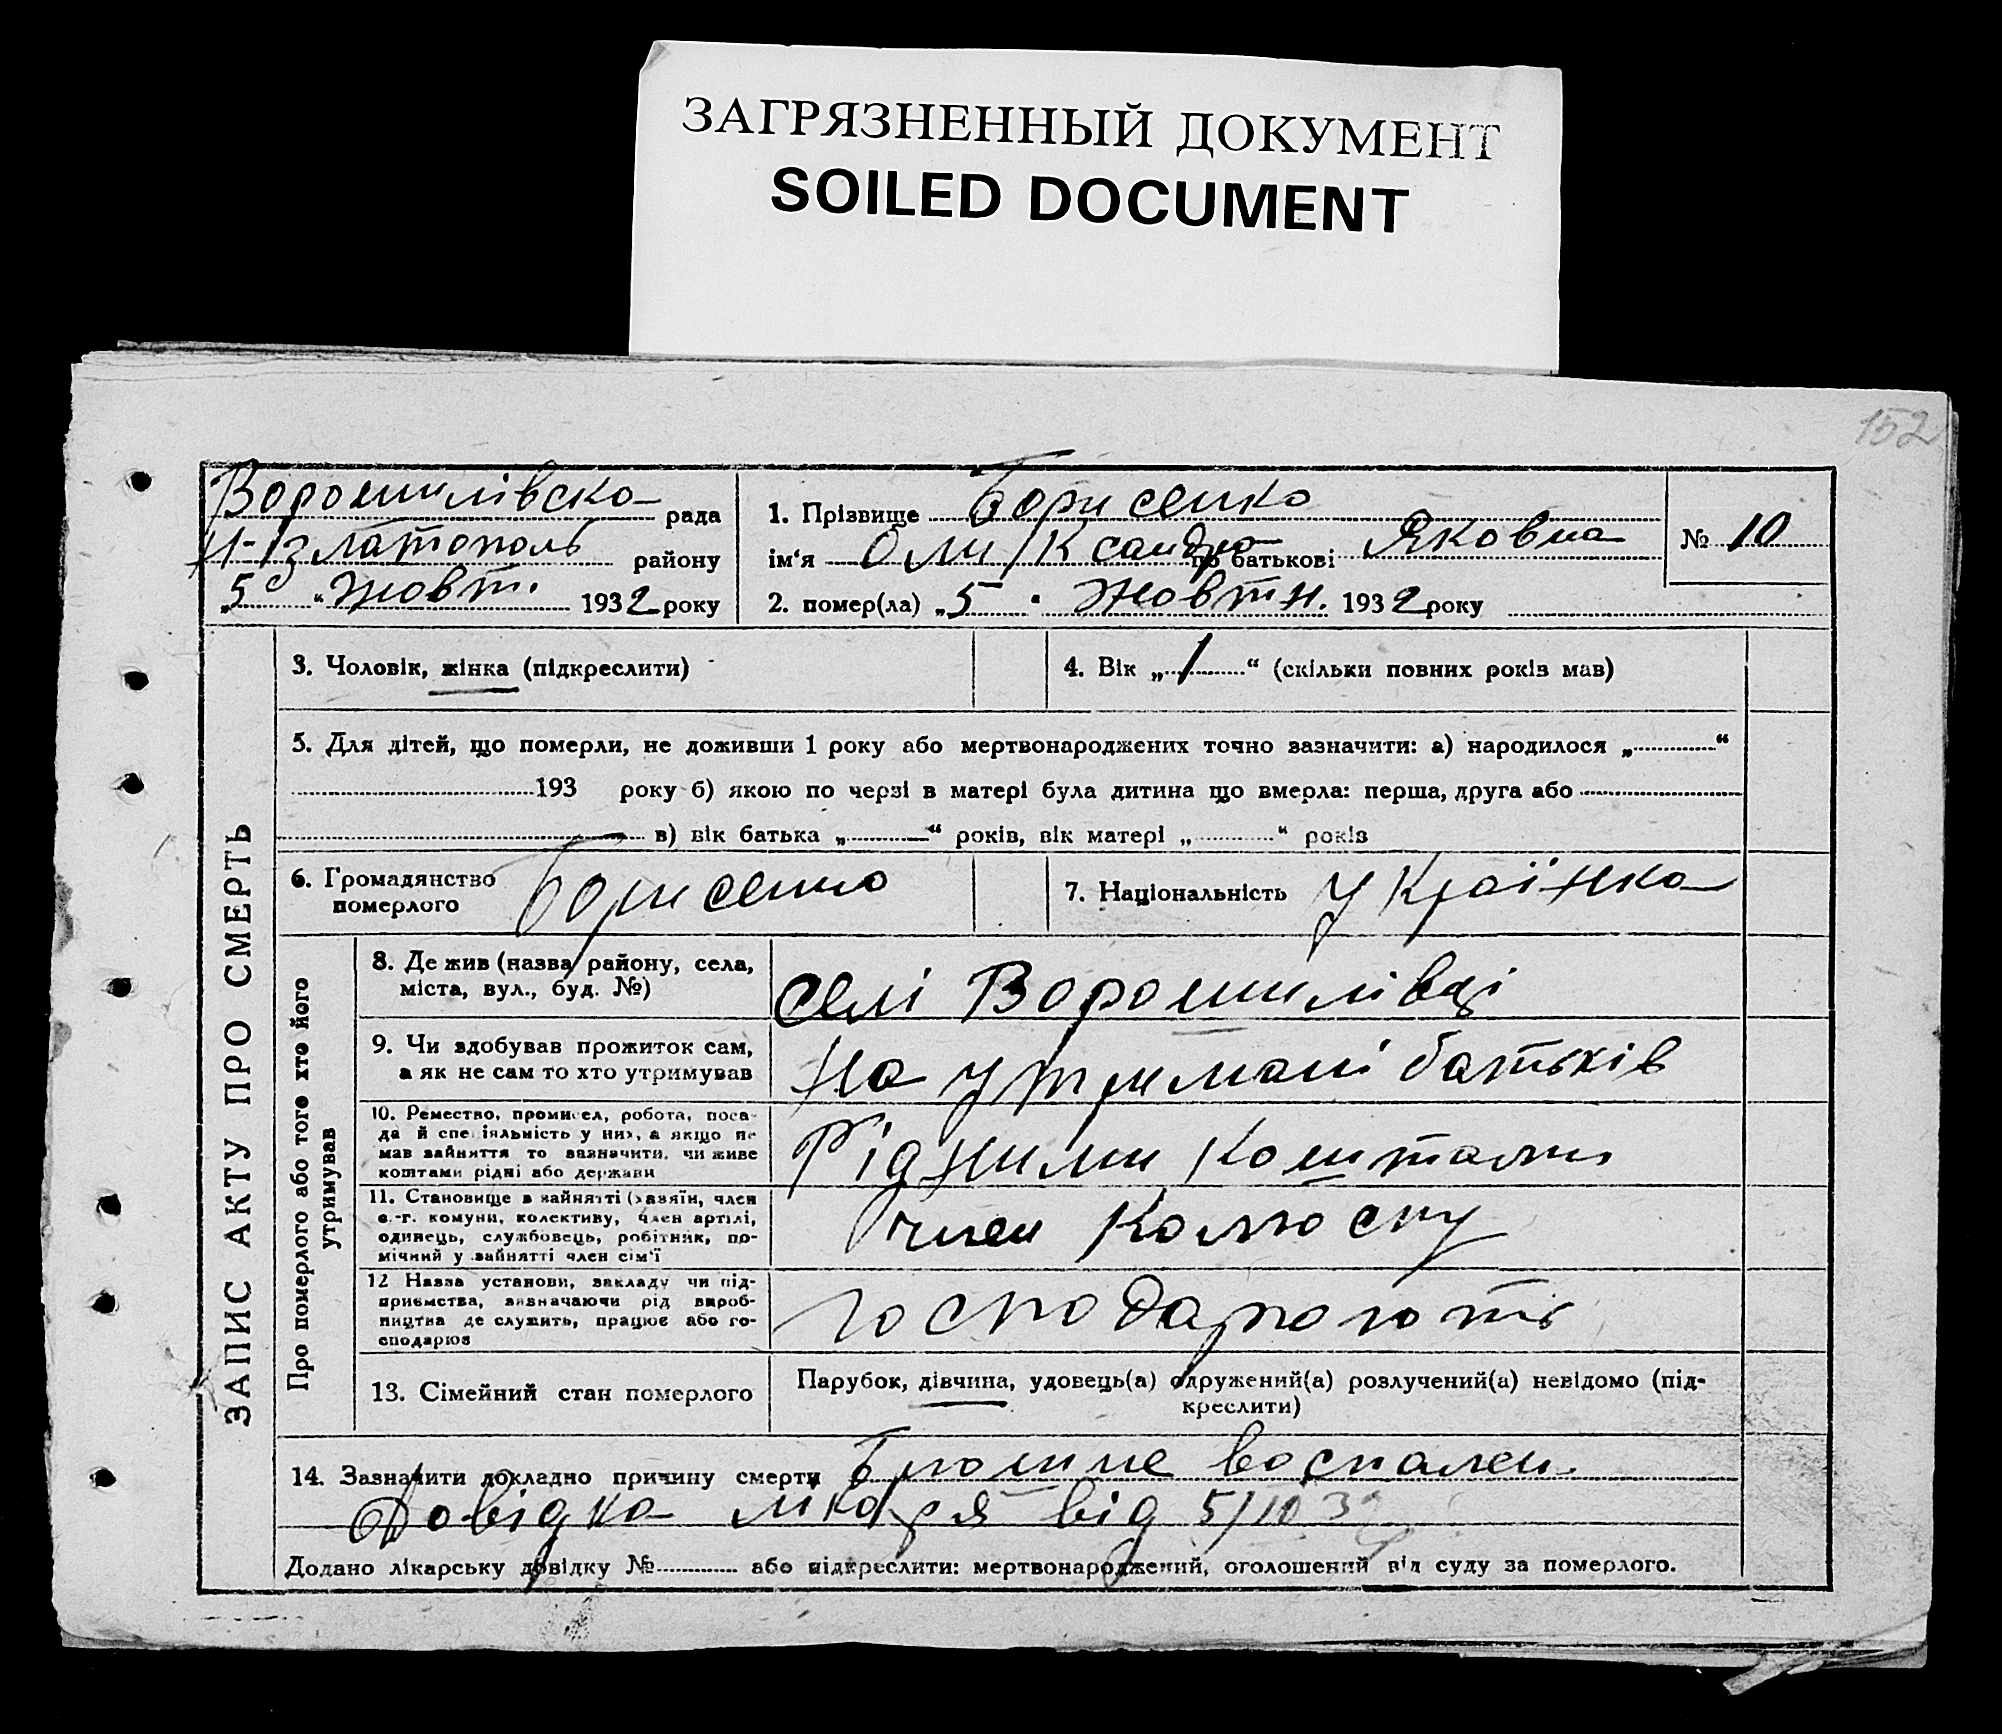 ЗАГРЯЗНЕННЫЙ ДОКУМЕНТ
SOILED DOCUMENT
152
Ворошилівска рада
Н-Златополь району
„5“ Жовт. 1932 року
1. Прізвище Борисенко
ім‘я Оликсандра по батькові Яковна
2. помер(ла) „5 Жовтн. 1932 року
№ 10
ЗАПИС АКТУ ПРО СМЕРТЬ
3. Чоловік, жінка (підкреслити)
4. Вік „1“ (скільки повних років мав)
5. Для дітей, що померли, не доживши 1 року або мертвонароджених точно зазначити: а) народилося „ “
193 року б) якою по черзі в матері була дитина що вмерла: перша, друга або
в) вік батька „ “ років, вік матері „ “ років
6. Громадянство померлого Борисенко
7. Національність Українка
Про померлого або того хто його утримував
8. Де жив (назва району, села,
міста, вул., буд. №)
селі Ворошилівці
9. Чи здобував прожиток сам,
а як не сам то хто утримував
На утримані батьків
10. Ремество, промисел, робота, поса-
да й спеціяльність у них, а якщо не
мав зайняття то зазначити, чи живе
коштами рідні або держави
Рідними коштами
11. Становище в зайнятті (хазяїн, член
с.-г. комуни, колективу, член артілі,
одинець, службовець, робітник, по-
мічний у зайнятті член сім‘ї
член
12 Назва установи, закладу чи під-
приємства, зазначаючи рід вироб-
ництва де служить, працює або го-
сподарює
господарюють
13. Сімейний стан померлого
Парубок, дівчина, удовець(а) одружений(а) розлучений(а) невідомо (під-
креслити)
14. Зазначити докладно причину смерти воспален.
Довідка лікаря від 5/10 32
Додано лікарську довідку № або підкреслити: мертвонароджений, оголошений від суду за померлого.